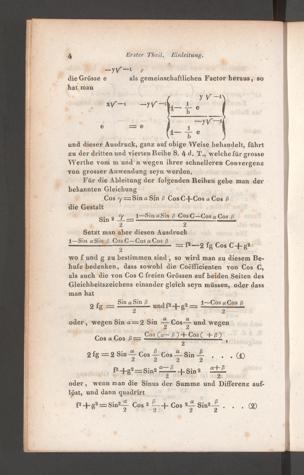 4 Erster Theil. Einleitung.
die Grösse e^{−y√−1} als gemeinschaftlichen Factor heraus, so
hat man
e^{x√−1} = e^{−y√−1} {1−1/b e^{y√−1}} / {1−1/b e^{−y√−1}}
und dieser Ausdruck, ganz auf obige Weise behandelt, führt
zu der dritten und vierten Reihe S. 4 d. T., welche für grosse
Werthe vom m und n wegen ihrer schnelleren Convergenz
von grosser Anwendung seyn werden.
Für die Ableitung der folgenden Reihen gebe man der
bekannten Gleichung
Cos γ = Sin α Sin β Cos C + Cos α Cos β
die Gestalt
Sin² γ/2 = (1−Sin α Sin β Cos C−Cos α Cos β)/2
Setzt man aber diesen Ausdruck
(1−Sin α Sin β Cos C−Cos α Cos β)/2 = f²−2 fg Cos C+g²
wo f und g zu bestimmen sind, so wird man zu diesem Be-
hufe bedenken, dass sowohl die Coëfficienten von Cos C,
als auch die von Cos C freien Grössen auf beiden Seiten des
Gleichheitszeichens einander gleich seyn müssen, oder dass
man hat
2 fg = (Sin α Sin β)/2 und f²+g² = (1−Cos α Cos β)/2
oder, wegen Sin α = 2 Sin α/2 Cos α/2 und wegen
Cos α Cos β = (Cos (α−β)+Cos (α+β))/2,
2 fg = 2 Sin α/2 Cos β/2 Cos α/2 Sin β/2 . . . . (1)
f²+g² = Sin² (α−β)/2 + Sin² (α+β)/2
oder, wenn man die Sinus der Summe und Differenz auf-
löst, und dann quadrirt
f²+g² = Sin² α/2 Cos² β/2 + Cos² α/2 Sin² β/2 . . . . (2)